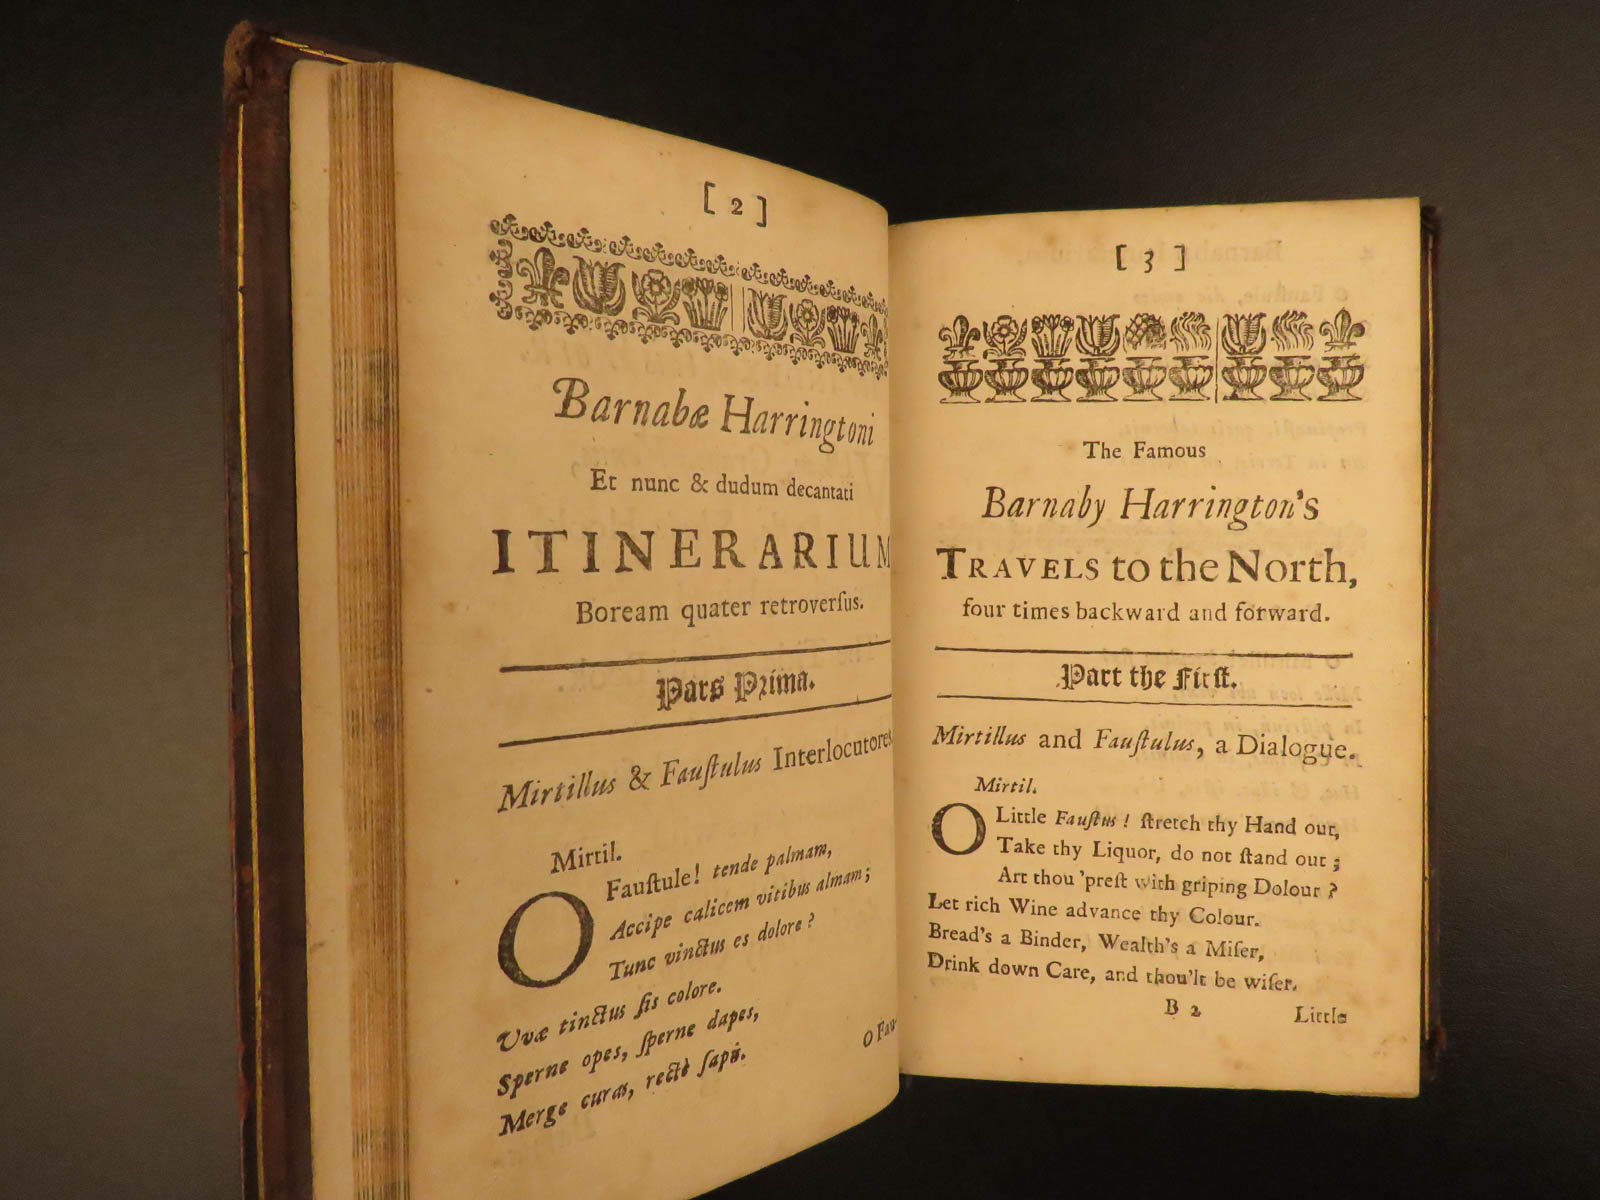 [ 2 ]
Barnabæ Harringtoni
Et nunc & dudum decantati
ITINERARIUM
Boream quater retroverſus.
Pars Prima.
Mirtillus & Fauſtulus Interlocutores.
Mirtil.
O Fauſtule! tende palmam,
Accipe calicem vitibus almam;
Tunc vinctus es dolore?
Uvæ tinctus ſis colore.
Sperne opes, ſperne dapes,
Merge curas, rectè ſapis.
O Fau-
[ 3 ]
The Famous
Barnaby Harrington's
TRAVELS to the North,
four times backward and forward.
Part the Firſt.
Mirtillus and Fauſtulus, a Dialogue.
Mirtil.
O Little Fauſtus! ſtretch thy Hand out,
Take thy Liquor, do not ſtand out;
Art thou 'preſt with griping Dolour?
Let rich Wine advance thy Colour.
Bread's a Binder, Wealth's a Miſer,
Drink down Care, and thou'lt be wiſer.
B 2
Little